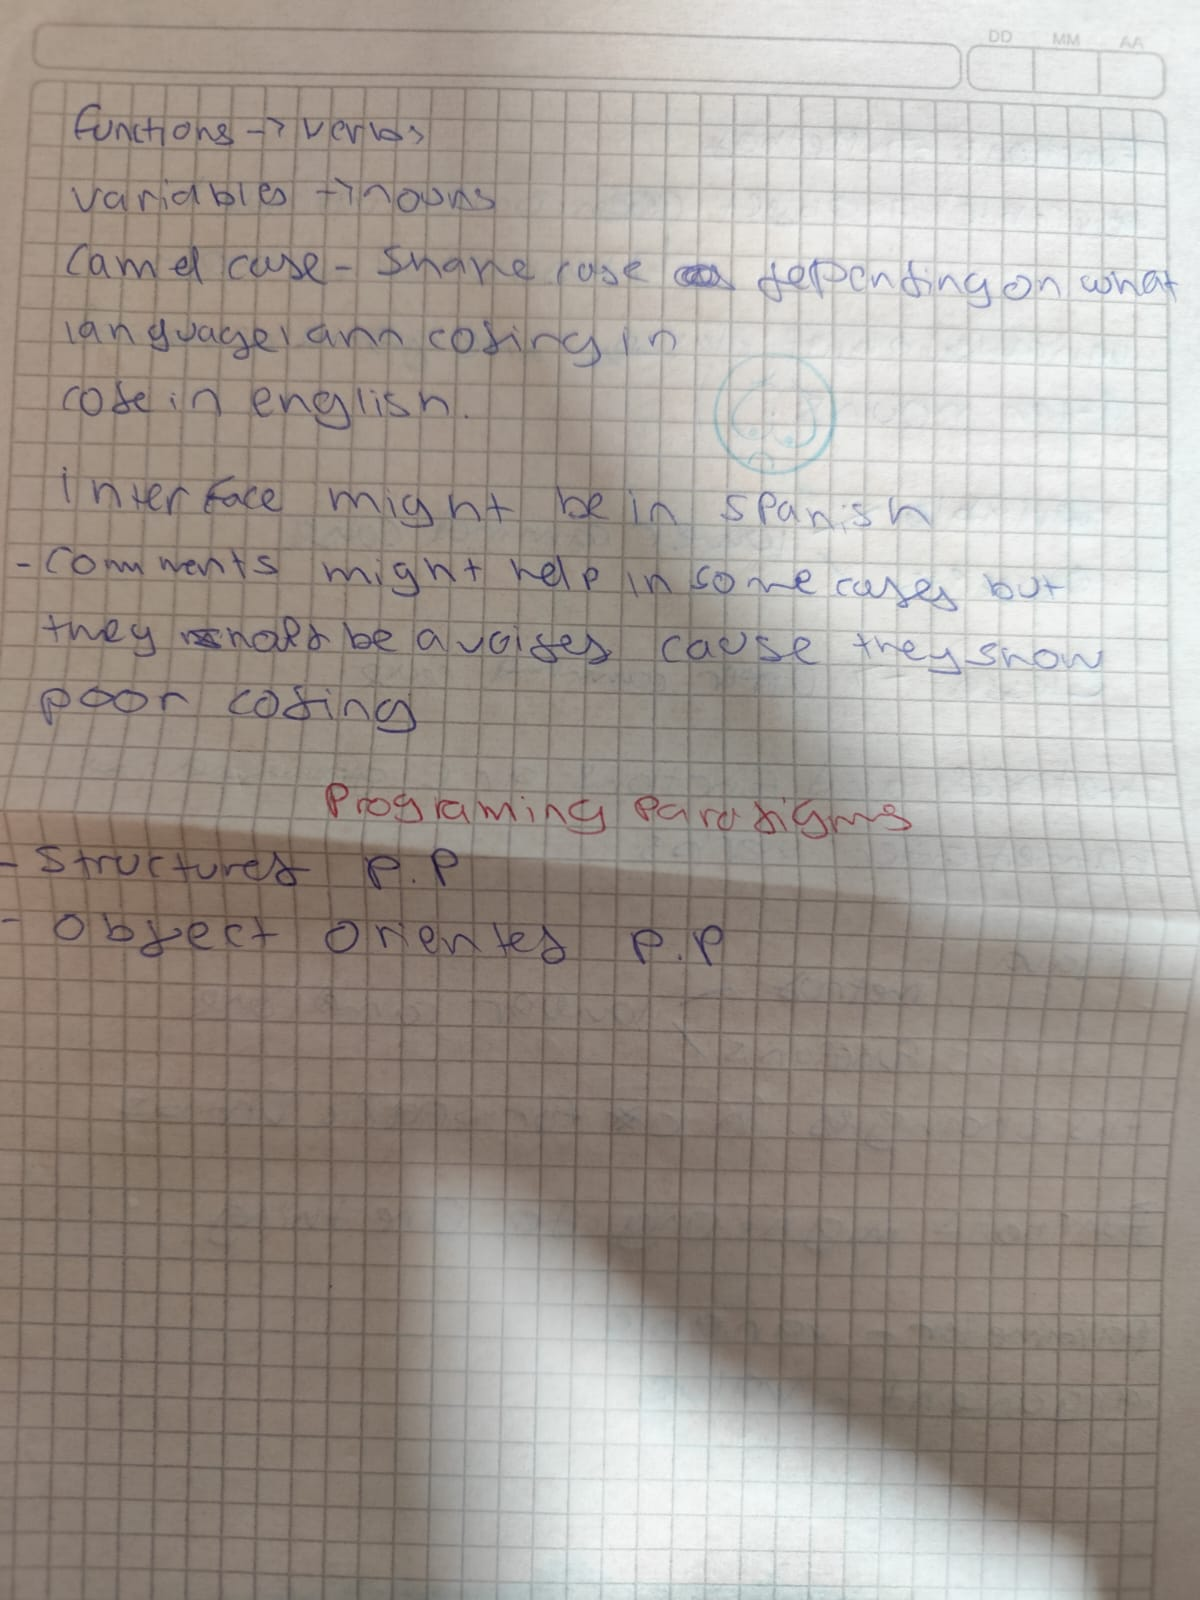 DD MM AA
functions -> verbs
variables -> nouns
Camel case - Snake case depending on what
language I am coding in
code in english.
interface might be in spanish
- comments might help in some cases but
they be avoided cause they show
poor coding
Programing Paradigms
- Structured P.P
- Object Oriented P.P